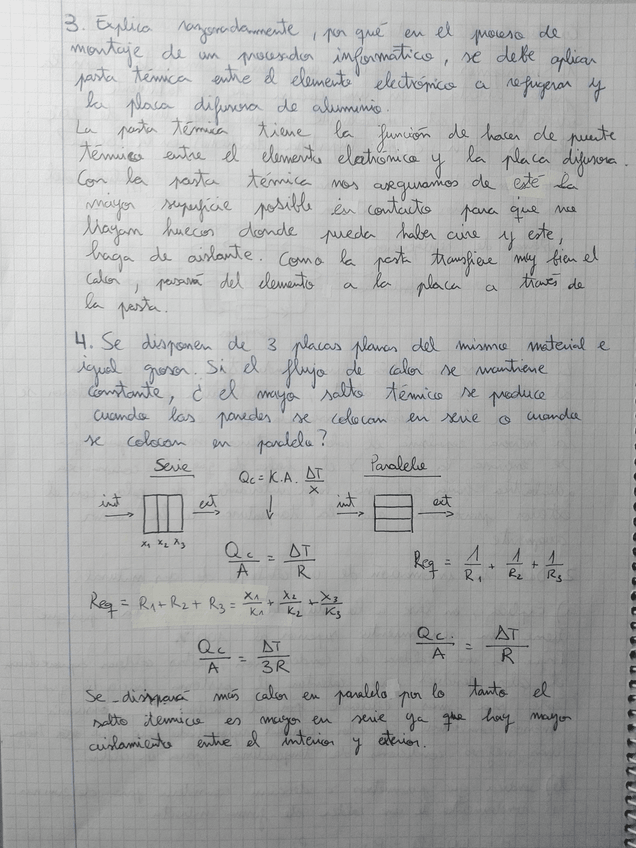 3. Explica razonadamente, por qué en el proceso de
montaje de un procesador informatico, se debe aplicar
pasta térmica entre el elemento electrónico a refrigerar y
la placa difusora de aluminio.
La pasta térmica tiene la función de hacer de puente
térmico entre el elemento electrónico y la placa difusora.
Con la pasta térmica nos aseguramos de esté la
mayor superficie posible en contacto para que no
hayan huecos donde pueda haber aire y este,
haga de aislante. Como la pasta transfiere muy bien el
calor, pasará del elemento a la placa a través de
la pasta.
4. Se disponen de 3 placas planas del mismo material e
igual grosor. Si el flujo de calor se mantiene
constante, ¿ el mayor salto térmico se produce
cuando las paredes se colocan en serie o cuando
se colocan en paralelo?
Serie Qc = K.A. ΔT/x Paralelo
int ext int ext
x1 x2 x3
Qc/A = ΔT/R Req = 1/R1 + 1/R2 + 1/R3
Req = R1 + R2 + R3 = x1/K1 + x2/K2 + x3/K3
Qc/A = ΔT/3R Qc./A = ΔT/R
Se disipará más calor en paralelo por lo tanto el
salto térmico es mayor en serie ya que hay mayor
aislamiento entre el interior y exterior.